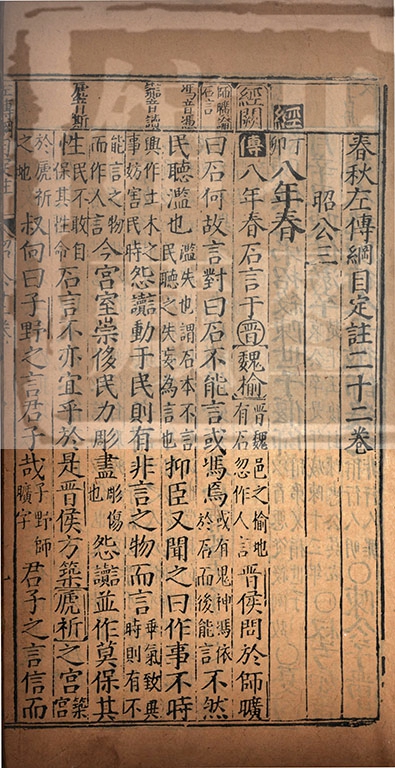 春秋左傳綱目定註二十二卷
昭公三
經
丁卯八年春
經闕
傳八年春石言于晉魏榆晉魏邑之榆地有石忽作人言晉侯問於師曠
師曠論石言
曰石何故言對曰石不能言或馮焉或有鬼神馮依於石而後能言不然
馮音憑
民聽濫也濫失也謂石本不言民聽之失妄為言也抑臣又聞之曰作事不時
讟音讀
興作土木之事妨害民時怨讟動于民則有非言之物而言乖氣致異時則有不
能言之物而作人言今宮室崇侈民力彫盡彫傷也怨讟並作莫保其
虒音斯
性民不敢自保其性命石言不亦宜乎於是晉侯方築虒祁之宮築宮
於虒祁之地叔向曰子野之言君子哉子野師曠字君子之言信而